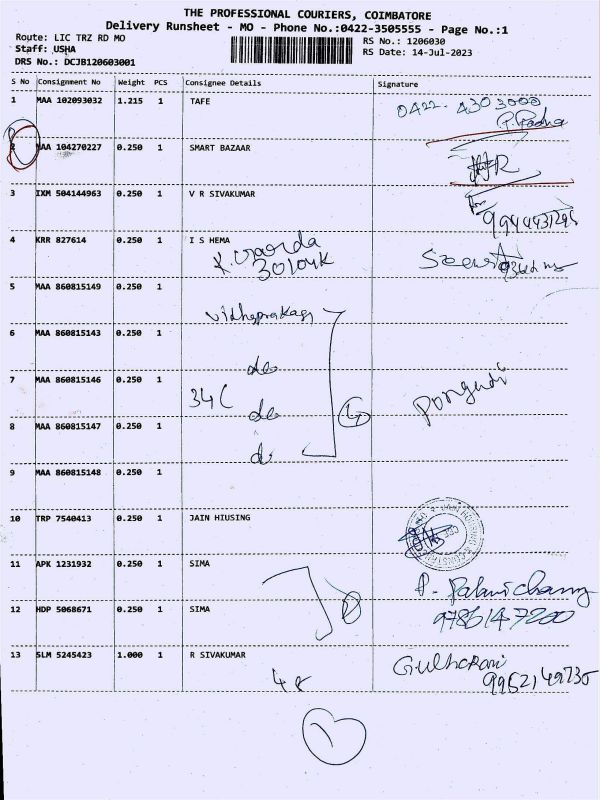 THE PROFESSIONAL COURIERS, COIMBATORE
Delivery Runsheet - MO - Phone No.:0422-3505555 - Page No.:1
Route: LIC TRZ RD MO
RS No.: 1206030
Staff: USHA
RS Date: 14-Jul-2023
DRS No.: DCJB120603001
S No Consignment No Weight PCS Consignee Details Signature
1 MAA 102093032 1.215 1 TAFE
0422-4303000
2 MAA 104270227 0.250 1 SMART BAZAAR
3 IXM 504144963 0.250 1 V R SIVAKUMAR
4 KRR 827614 0.250 1 I S HEMA
5 MAA 860815149 0.250 1
6 MAA 860815143 0.250 1
do
7 MAA 860815146 0.250 1
do
8 MAA 860815147 0.250 1
9 MAA 860815148 0.250 1
10 TRP 7540413 0.250 1 JAIN HIUSING
11 APK 1231932 0.250 1 SIMA
12 HDP 5068671 0.250 1 SIMA
9786147200
13 SLM 5245423 1.000 1 R SIVAKUMAR
9952149735